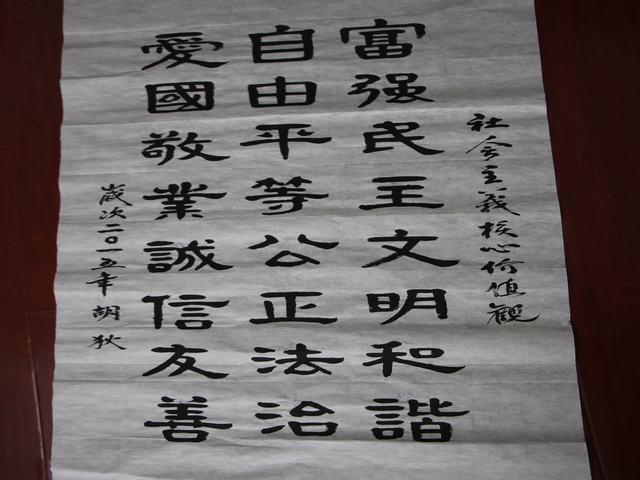 社会主義核心价值观
富强民主文明和諧
自由平等公正法治
愛國敬業誠信友善
歲次二〇一五年胡狄